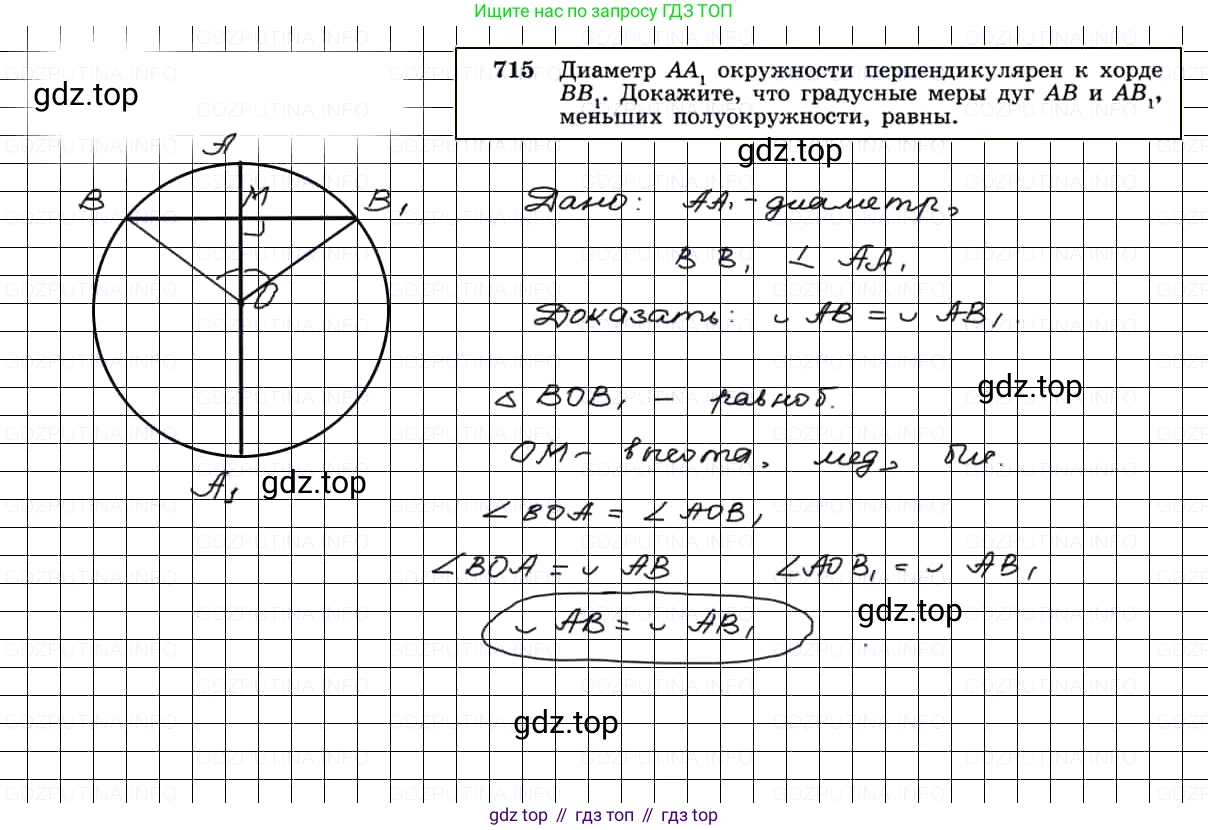 Ищите нас по запросу ГДЗ ТОП
715 Диаметр AA₁ окружности перпендикулярен к хорде
BB₁. Докажите, что градусные меры дуг AB и AB₁,
меньших полуокружности, равны.
gdz.top
gdz.top
A
B
M
B₁
O
A₁
gdz.top
Дано: AA₁ - диаметр,
BB₁ ⊥ AA₁
Доказать: ◡ AB = ◡ AB₁.
gdz.top
△ BOB₁ — равноб.
OM - высота, мед, бис.
∠ BOA = ∠ AOB₁
∠BOA = ◡ AB ∠AOB₁ = ◡ AB₁
gdz.top
◡ AB = ◡ AB₁
gdz.top
GDZPUTINA.INFO
gdz top // гдз топ // gdz top